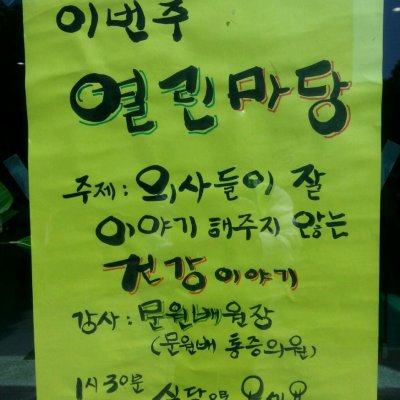 이번주
열린마당
주제 : 의사들이 잘
이야기 해주지 않는
건강 이야기
강사 : 문원배원장
(문원배 통증의원)
1시 30분 식당으로 오세요